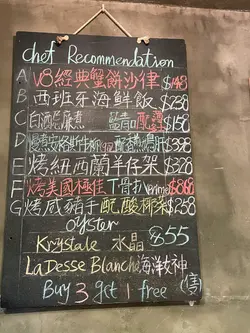 Chef Recommendation
A V8經典蟹餅沙律 $148
B 西班牙海鮮飯 $238
C 白酒 煮 青口 $158
D $398
E 烤紐西蘭羊仔架 $328
F 烤美國極佳丁骨扒 Prime $868
G 烤咸豬手配酸椰菜 $258
Oyster
Krystale 水晶 $55
La Desse Blanche 海洋女神
Buy 3 get 1 free